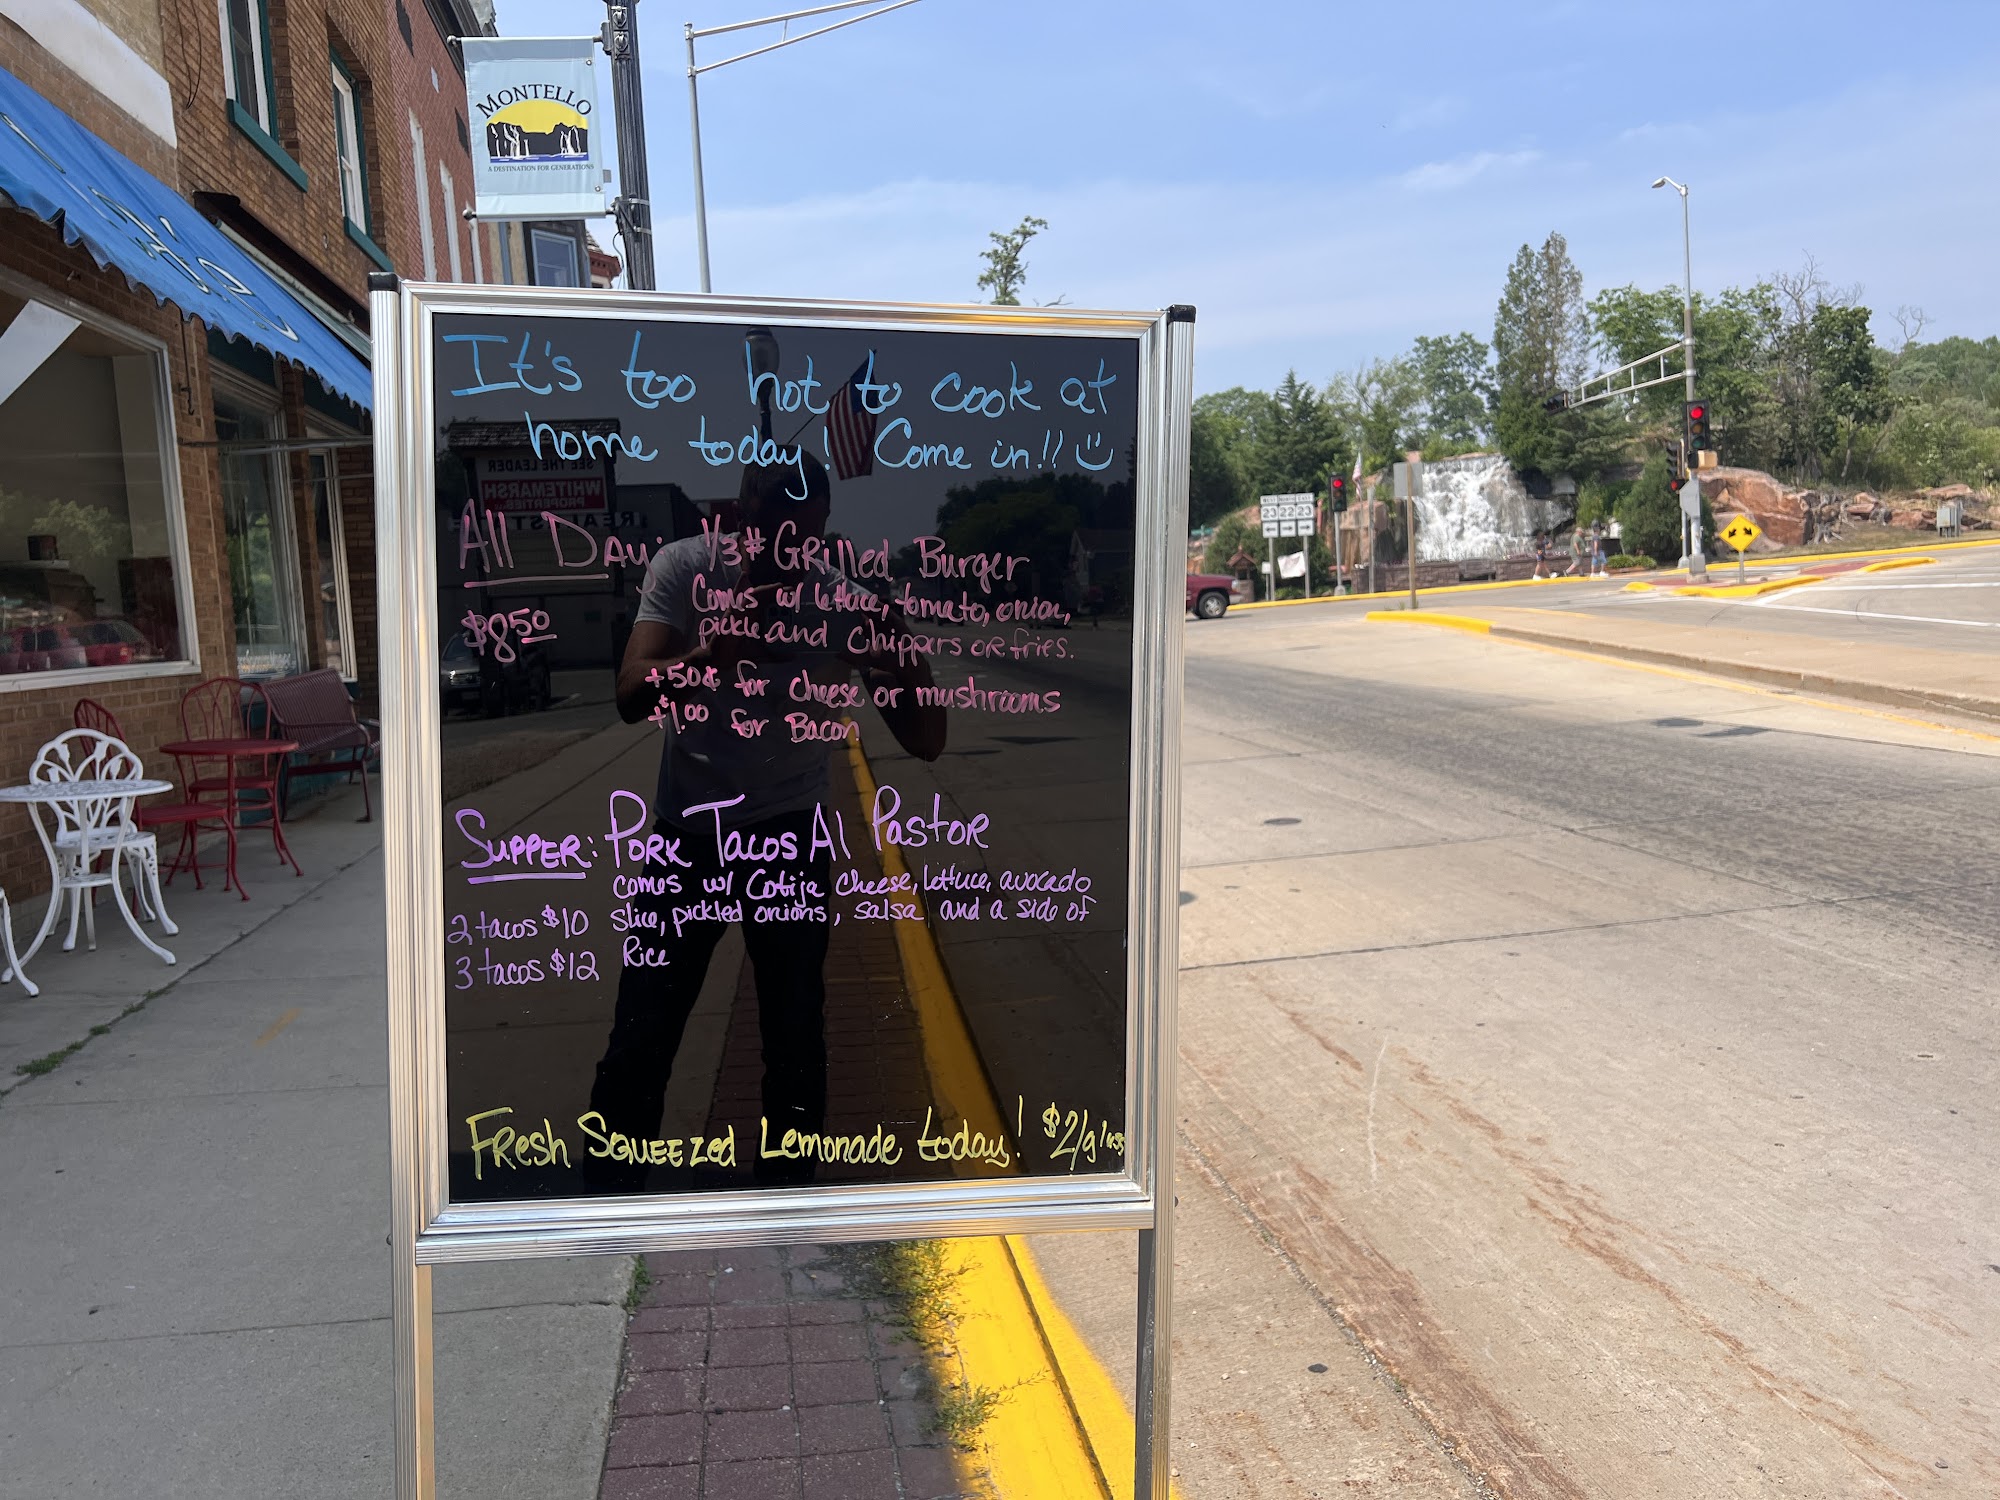 MONTELLO
A DESTINATION FOR GENERATIONS
It's too hot to cook at
home today! Come in!!
All Day: 1/3# Grilled Burger
$8.50
Comes w/ lettuce, tomato, onion,
pickle and chippers or fries.
+50¢ for cheese or mushrooms
+$1.00 for Bacon
Supper: Pork Tacos Al Pastor
comes w/ Cotija cheese, lettuce, avocado
slice, pickled onions, salsa and a side of
Rice
2 tacos $10
3 tacos $12
Fresh Squeezed Lemonade today! $2/glass
SEE THE LEADER
WHITEMARSH
PROPERTIES
WEST NORTH EAST
23 22 23